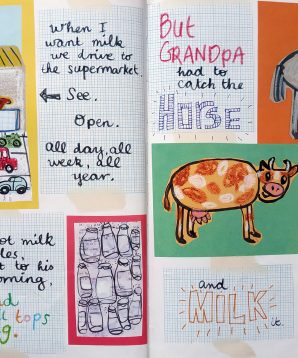 When I
want milk
we drive to
the supermarket.
See.
Open.
All day, all
week, all
year.
ot milk
les,
t to his
orning,
d
t tops
g.
But
GRANDPA
had to
catch the
HORSE
and
MILK it.